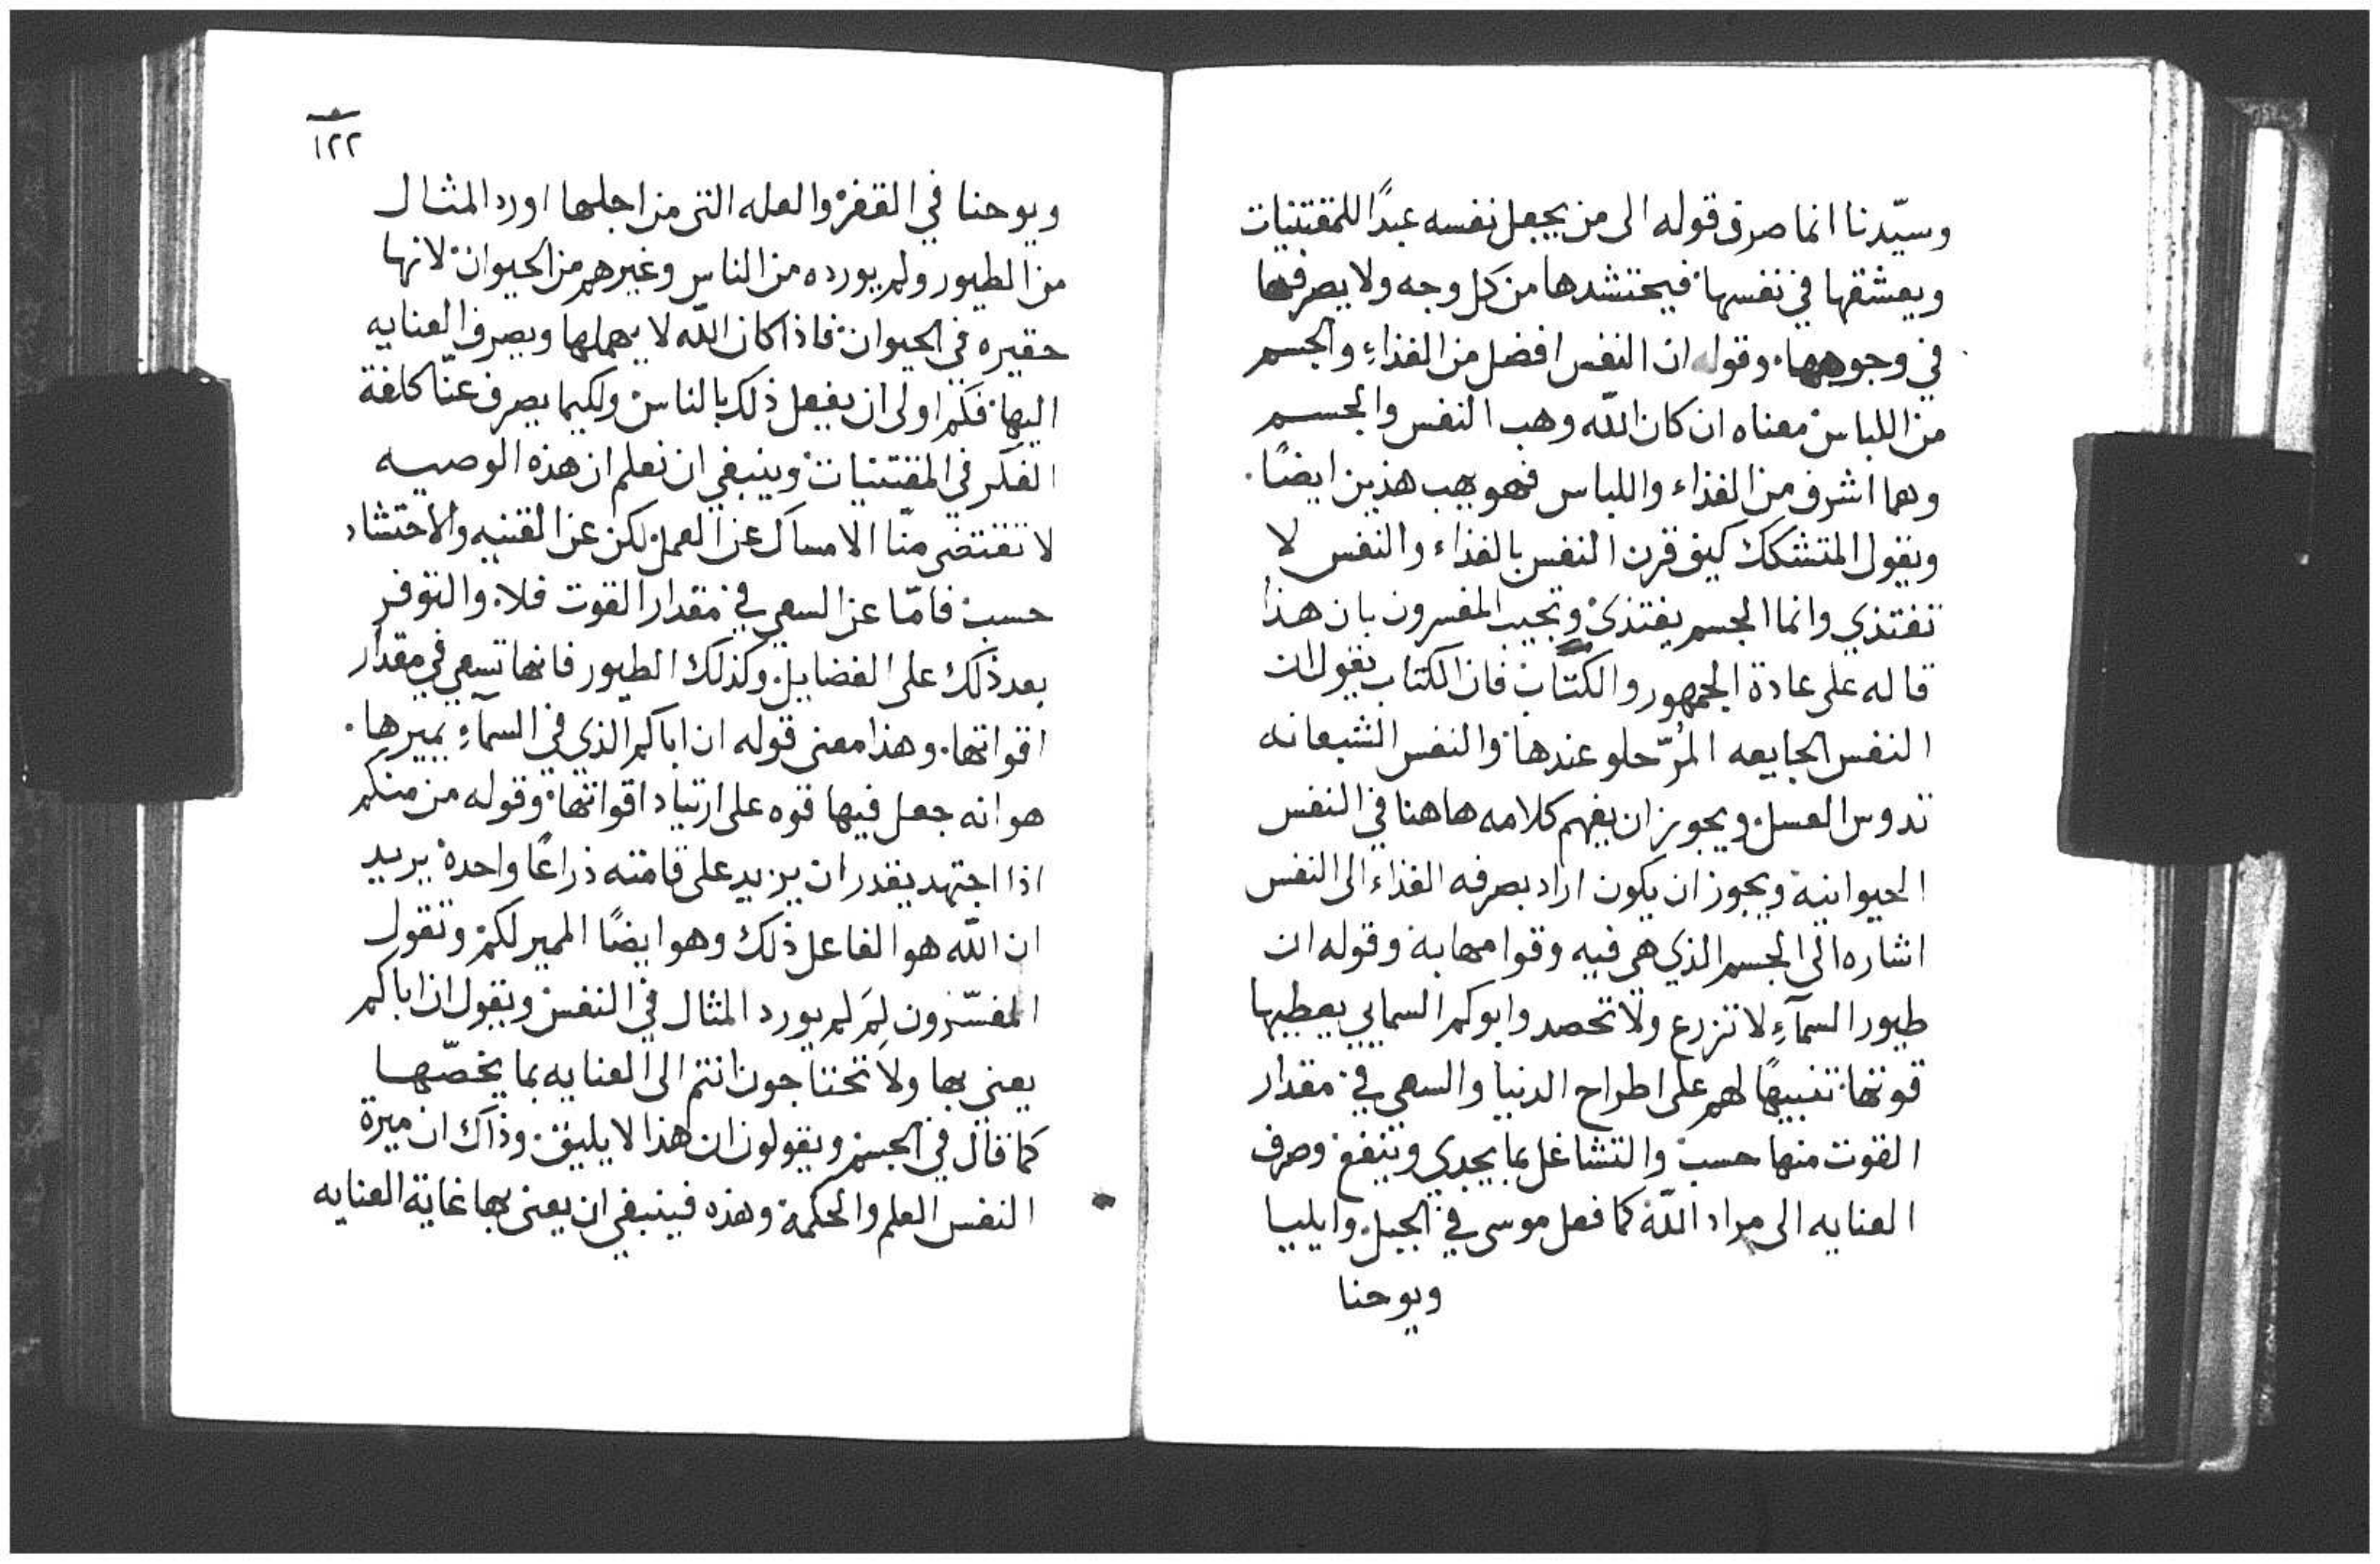 وسيّدنا انما صرف قوله الى من يجعل نفسه عبدًا للمقتنيات
ويعشقها في نفسها فيحتشدها من كل وجه ولا يصرفها
في وجوهها وقوله ان النفس افضل من الغذاءِ والجسم
من اللباس معناه ان كان اللّه وهب النفس والجسم
وهما اشرف من الغذاء واللباس فهو يهب هذين ايضًا
ويقول المتشكك كيف قرن النفس بالغذاء والنفس لا
تغتذي وانما الجسم يغتذى وتجيب المفسرون بان هذا
قاله على عادة الجمهور والكتاب فان الكتاب يقول ان
النفس الجايعه المُرّ حلو عندها والنفس الشبعانه
تدوس العسل ويجوز ان يفهم كلامه هاهنا في النفس
الحيوانية ويجوز ان يكون اراد بصرفه الغذاء الى النفس
اشاره الى الجسم الذي هي فيه وقوامها به وقوله ان
طيور السمآءِ لا تزرع ولا تحصد وابوكم السمايي يعطيها
قوتها تنبيهًا لهم على اطراح الدنيا والسعي في مقدار
القوت منها حسب والتشاغل بما يجدي وينفع وصرف
العنايه الى مراد اللّه كما فعل موسى في الجبل وايليا
ويوحنا
١٢٢
ويوحنا في القفر والعله التى من اجلها اورد المثال
من الطيور ولم يورده من الناس وغيرهم من الحيوان لانها
حقيره في الحيوان فاذا كان اللّه لا يهملها ويصرف العنايه
اليها فكم اولى ان يفعل ذلك بالناس ولكيما يصرف عنّا كلفة
الفكر في المقتنيات وينبغي ان نعلم ان هذه الوصيه
لا تقتضى منّا الامساك عن العمل لكن عن القنيه والاحتشاد
حسب فامّا عن السعي في مقدار القوت فلا والتوفر
بعد ذلك على الفضايل وكذلك الطيور فانها تسعي في مقدار
اقواتها وهذا معنى قوله ان اباكم الذي في السمآءِ يميرها
هو انه جعل فيها قوه على ارتياد اقواتها وقوله من منكم
اذا اجتهد يقدر ان يزيد على قامته ذراعًا واحدة يريد
ان اللّه هو الفاعل ذلك وهو ايضًا المير لكم وتقول
المفسّرون لِمَ لم يورد المثال في النفس ويقول ان اباكم
يعنى بها ولا تحتاجون انتم الى العنايه بما يخصّها
كما قال في الجسم ويقولون ان هذا لا يليق وذاك ان ميرة
النفس العلم والحكمة وهذه فينبغي ان يعنى بها غاية العنايه